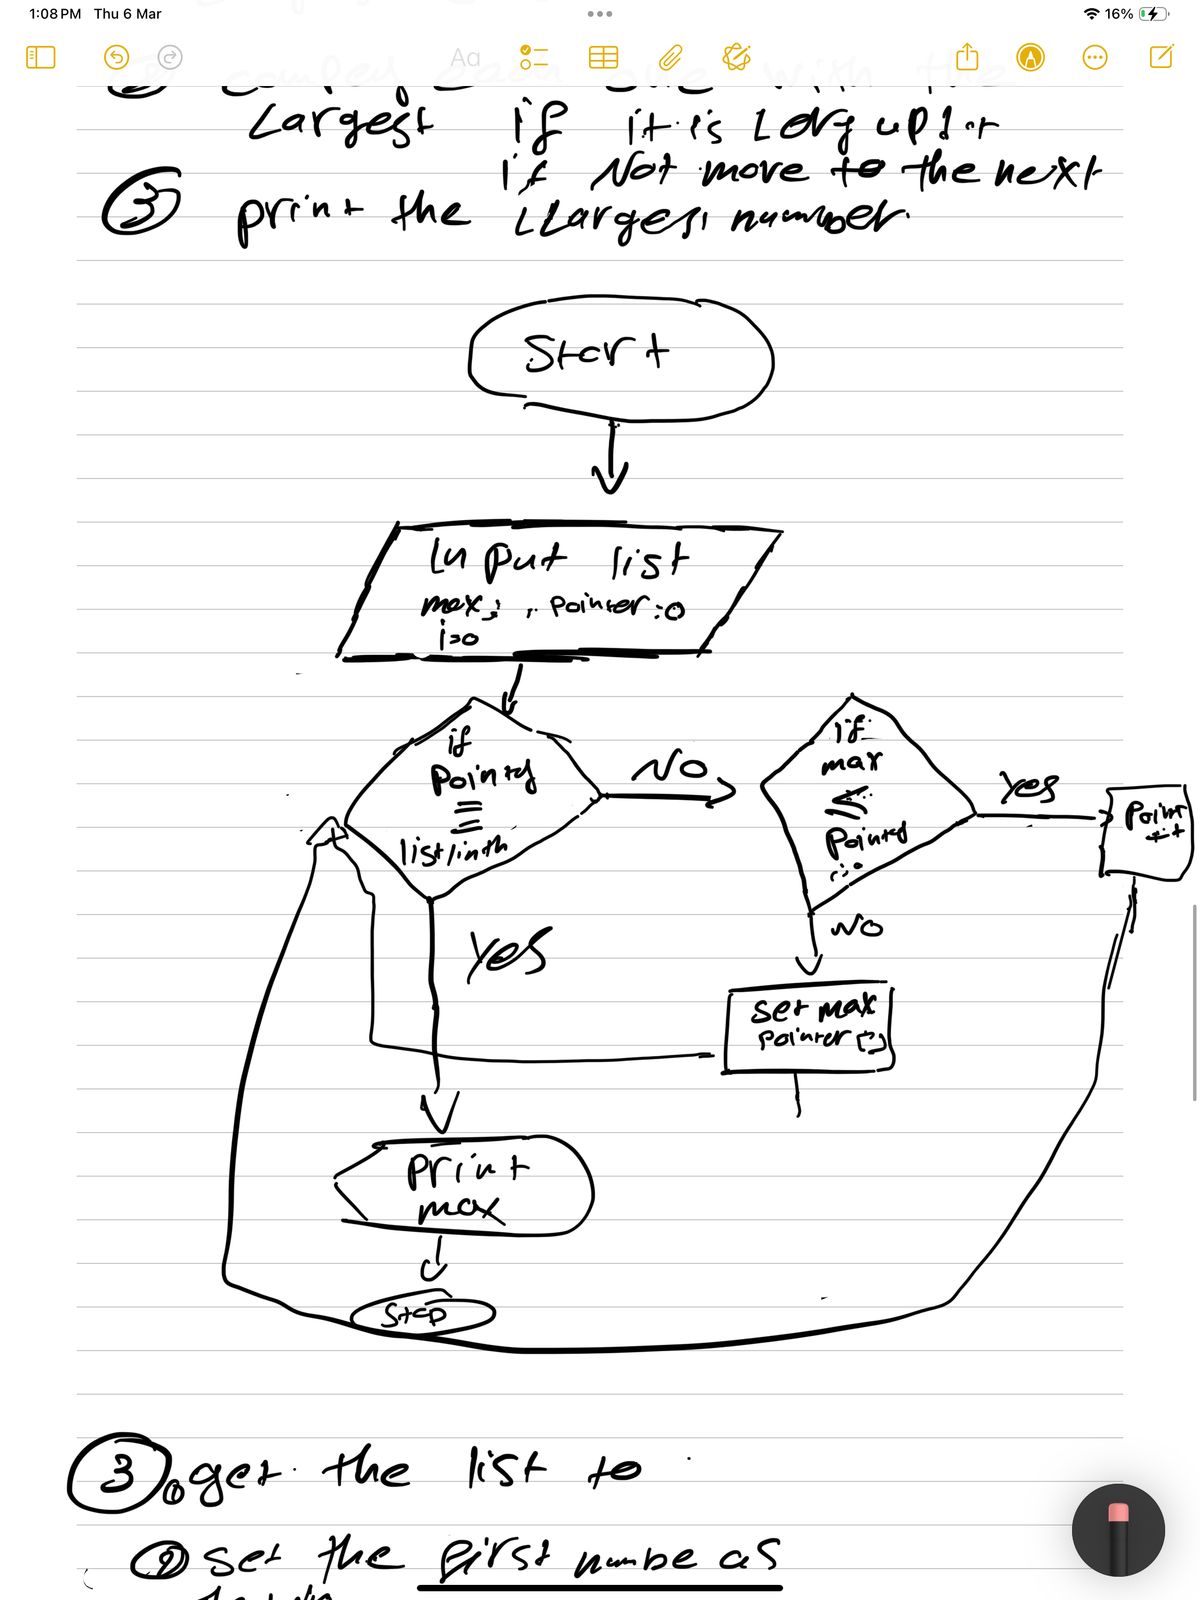 1:08 PM Thu 6 Mar
16%
Aa
with the
Largest if it is up
if Not move to the next
③ print the LLargest number.
Start
In put list
max, , pointer :0
i=0
if
Pointed
=
list/inth
NO
if
max
≤
Pointed
i=0
Yes
Point
++
NO
Yes
set max
Pointer []
print
max
Stop
③. get the list to
set the first numbe as